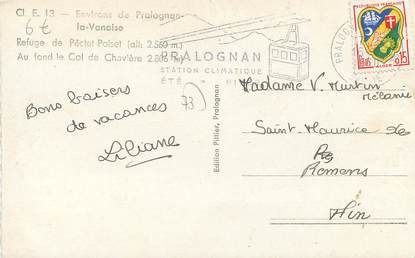 Cl. E. 13 — Environs de Pralognan
la-Vanoise
6€
Refuge de Péclet-Polset (alt: 2.560 m.)
Au fond le Col de Chavière 2.806 m)
PRALOGNAN
STATION CLIMATIQUE
ÉTÉ
73
Bons baisers
de vacances
Liliane
Edition Pittier, Pralognan
REPUBLIQUE FRANÇAISE
0,15
ALGER
Madame V. Murtin
Mélanie
Saint-Maurice de
Rg
Romans
Ain